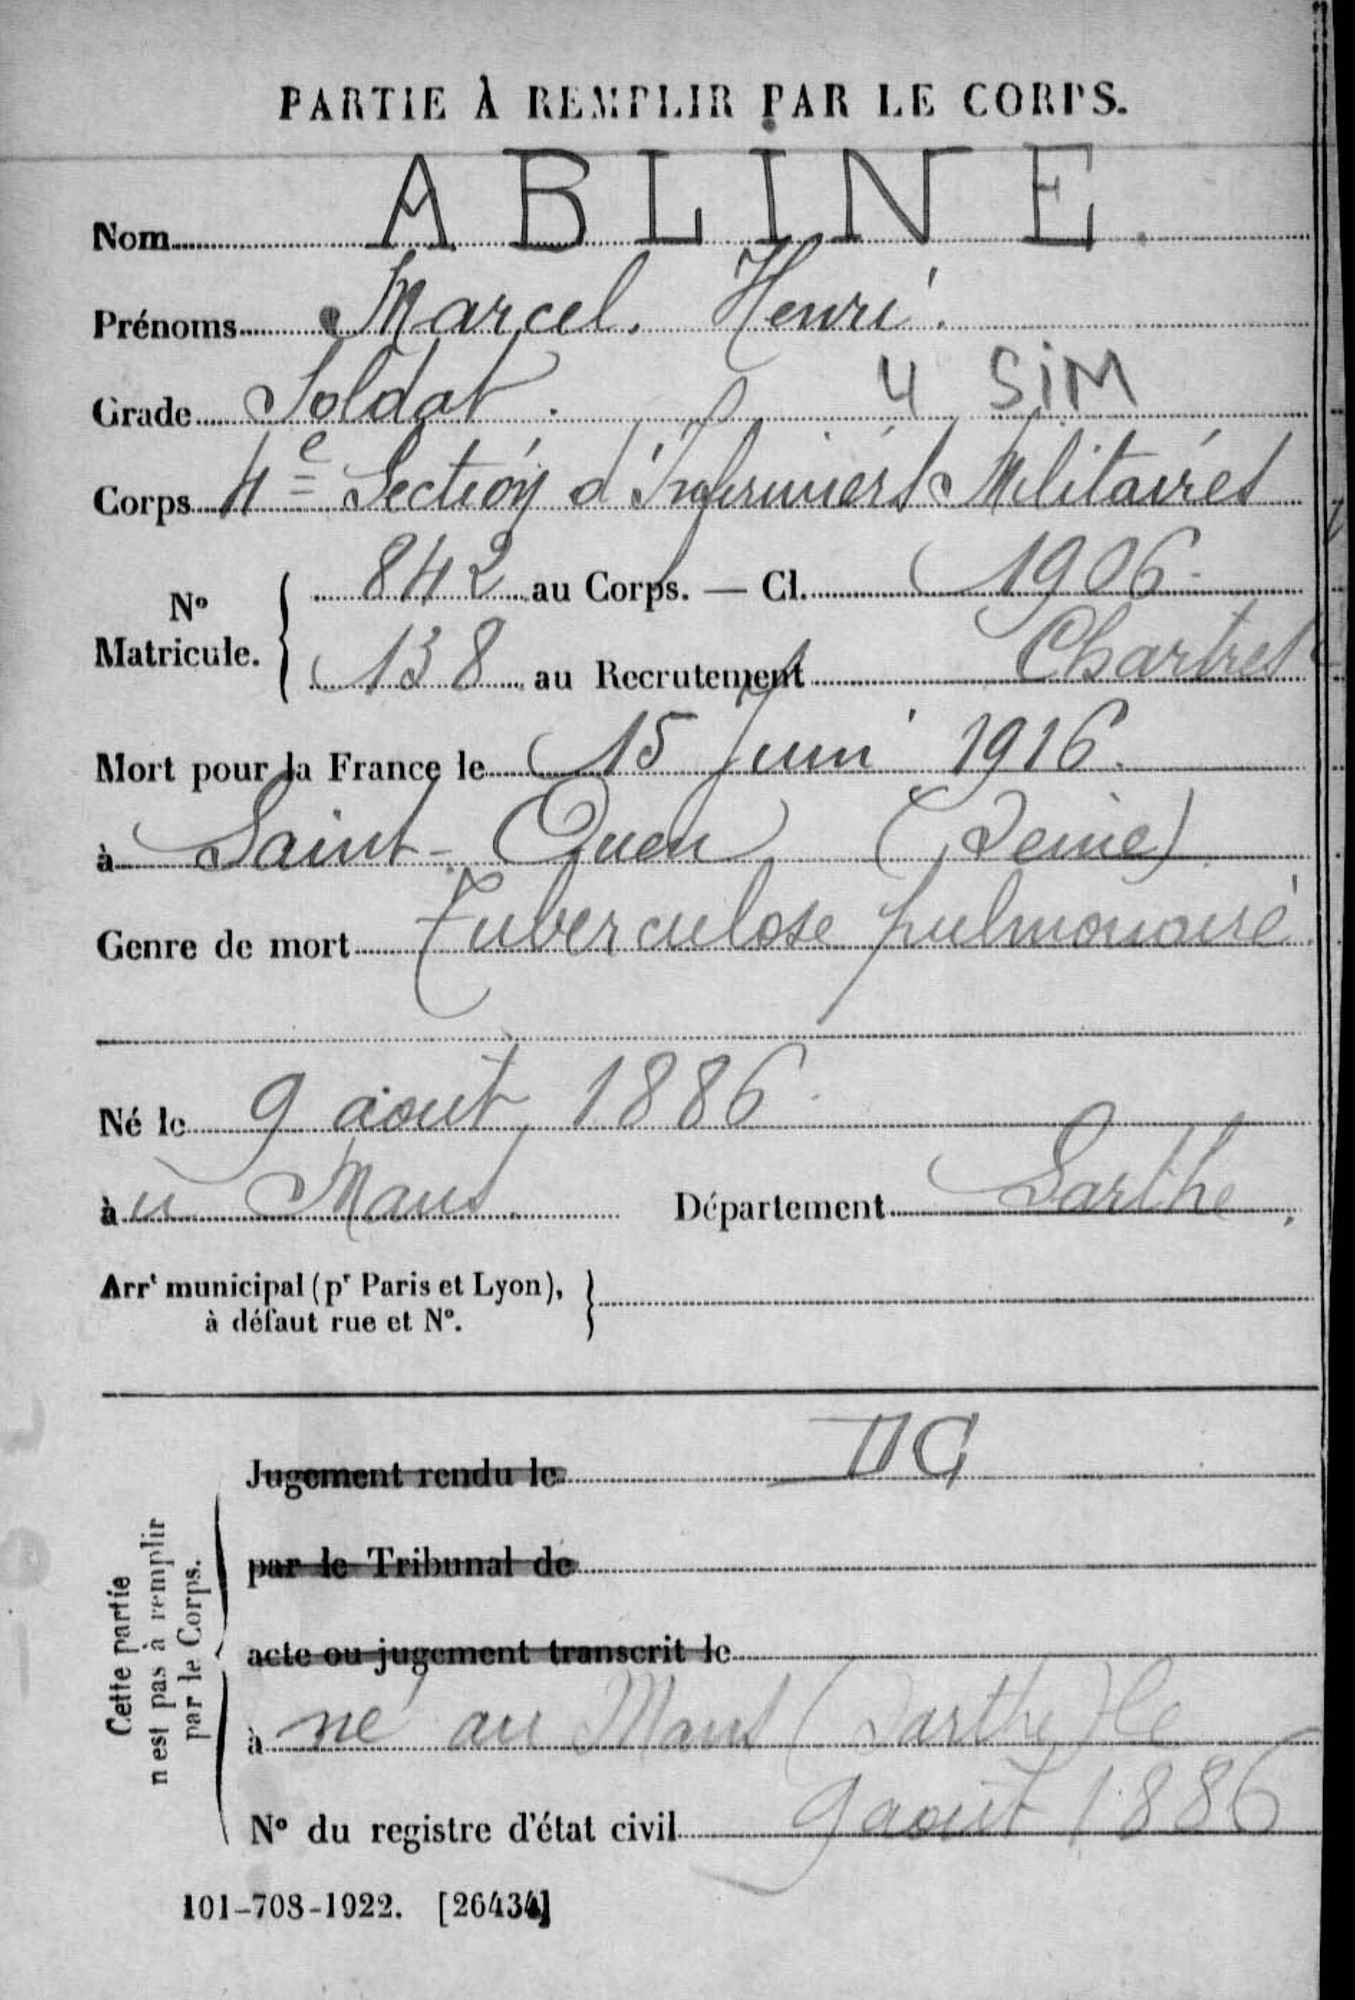 PARTIE À REMPLIR PAR LE CORPS.
Nom ABLINE.
Prénoms Marcel. Henri.
Grade Soldat. 4 SiM
Corps 4e Section d'Infirmiers Militaires
No Matricule. { 842 au Corps. — Cl. 1906.
138 au Recrutement Chartres
Mort pour la France le 15 Juin 1916.
à Saint-Ouen (Seine)
Genre de mort Tuberculose pulmonaire.
Né le 9 août 1886.
àu Mans. Département Sarthe.
Arrt municipal (pr Paris et Lyon),
à défaut rue et No. }
Jugement rendu le
par le Tribunal de
acte ou jugement transcrit le
à né au Mans (Sarthe) le
No du registre d'état civil 9 août 1886
Cette partie
n'est pas à remplir
par le Corps.
101-708-1922. [26434]